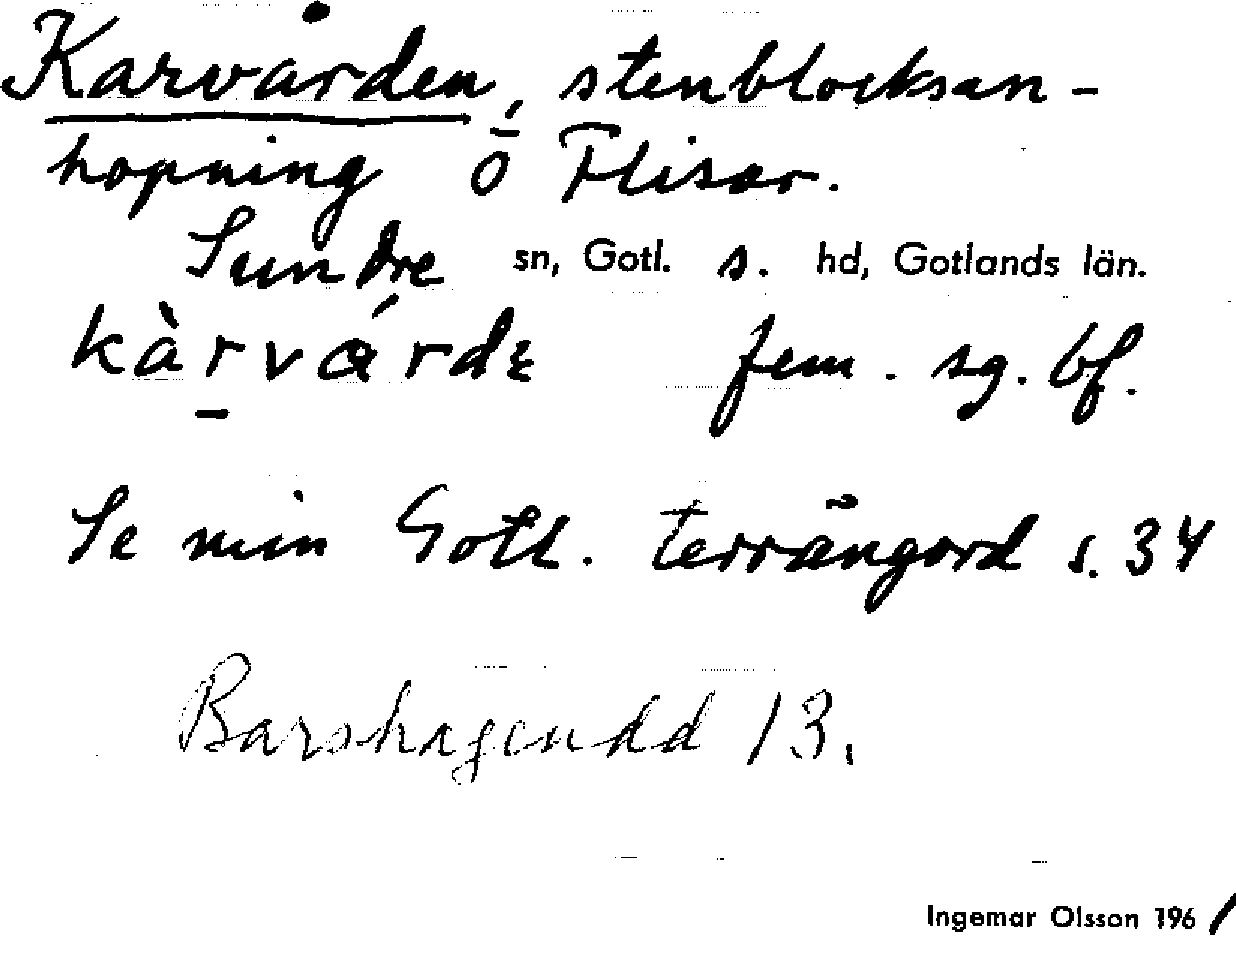 Karvården, stenblocksan-
hopning ö Flisar.
Sundre sn, Gotl. s. hd, Gotlands län.
kàrvá́rdε fem. sg. bf.
Se min Gotl. terrängord s. 34
Barshageudd 13.
Ingemar Olsson 1961